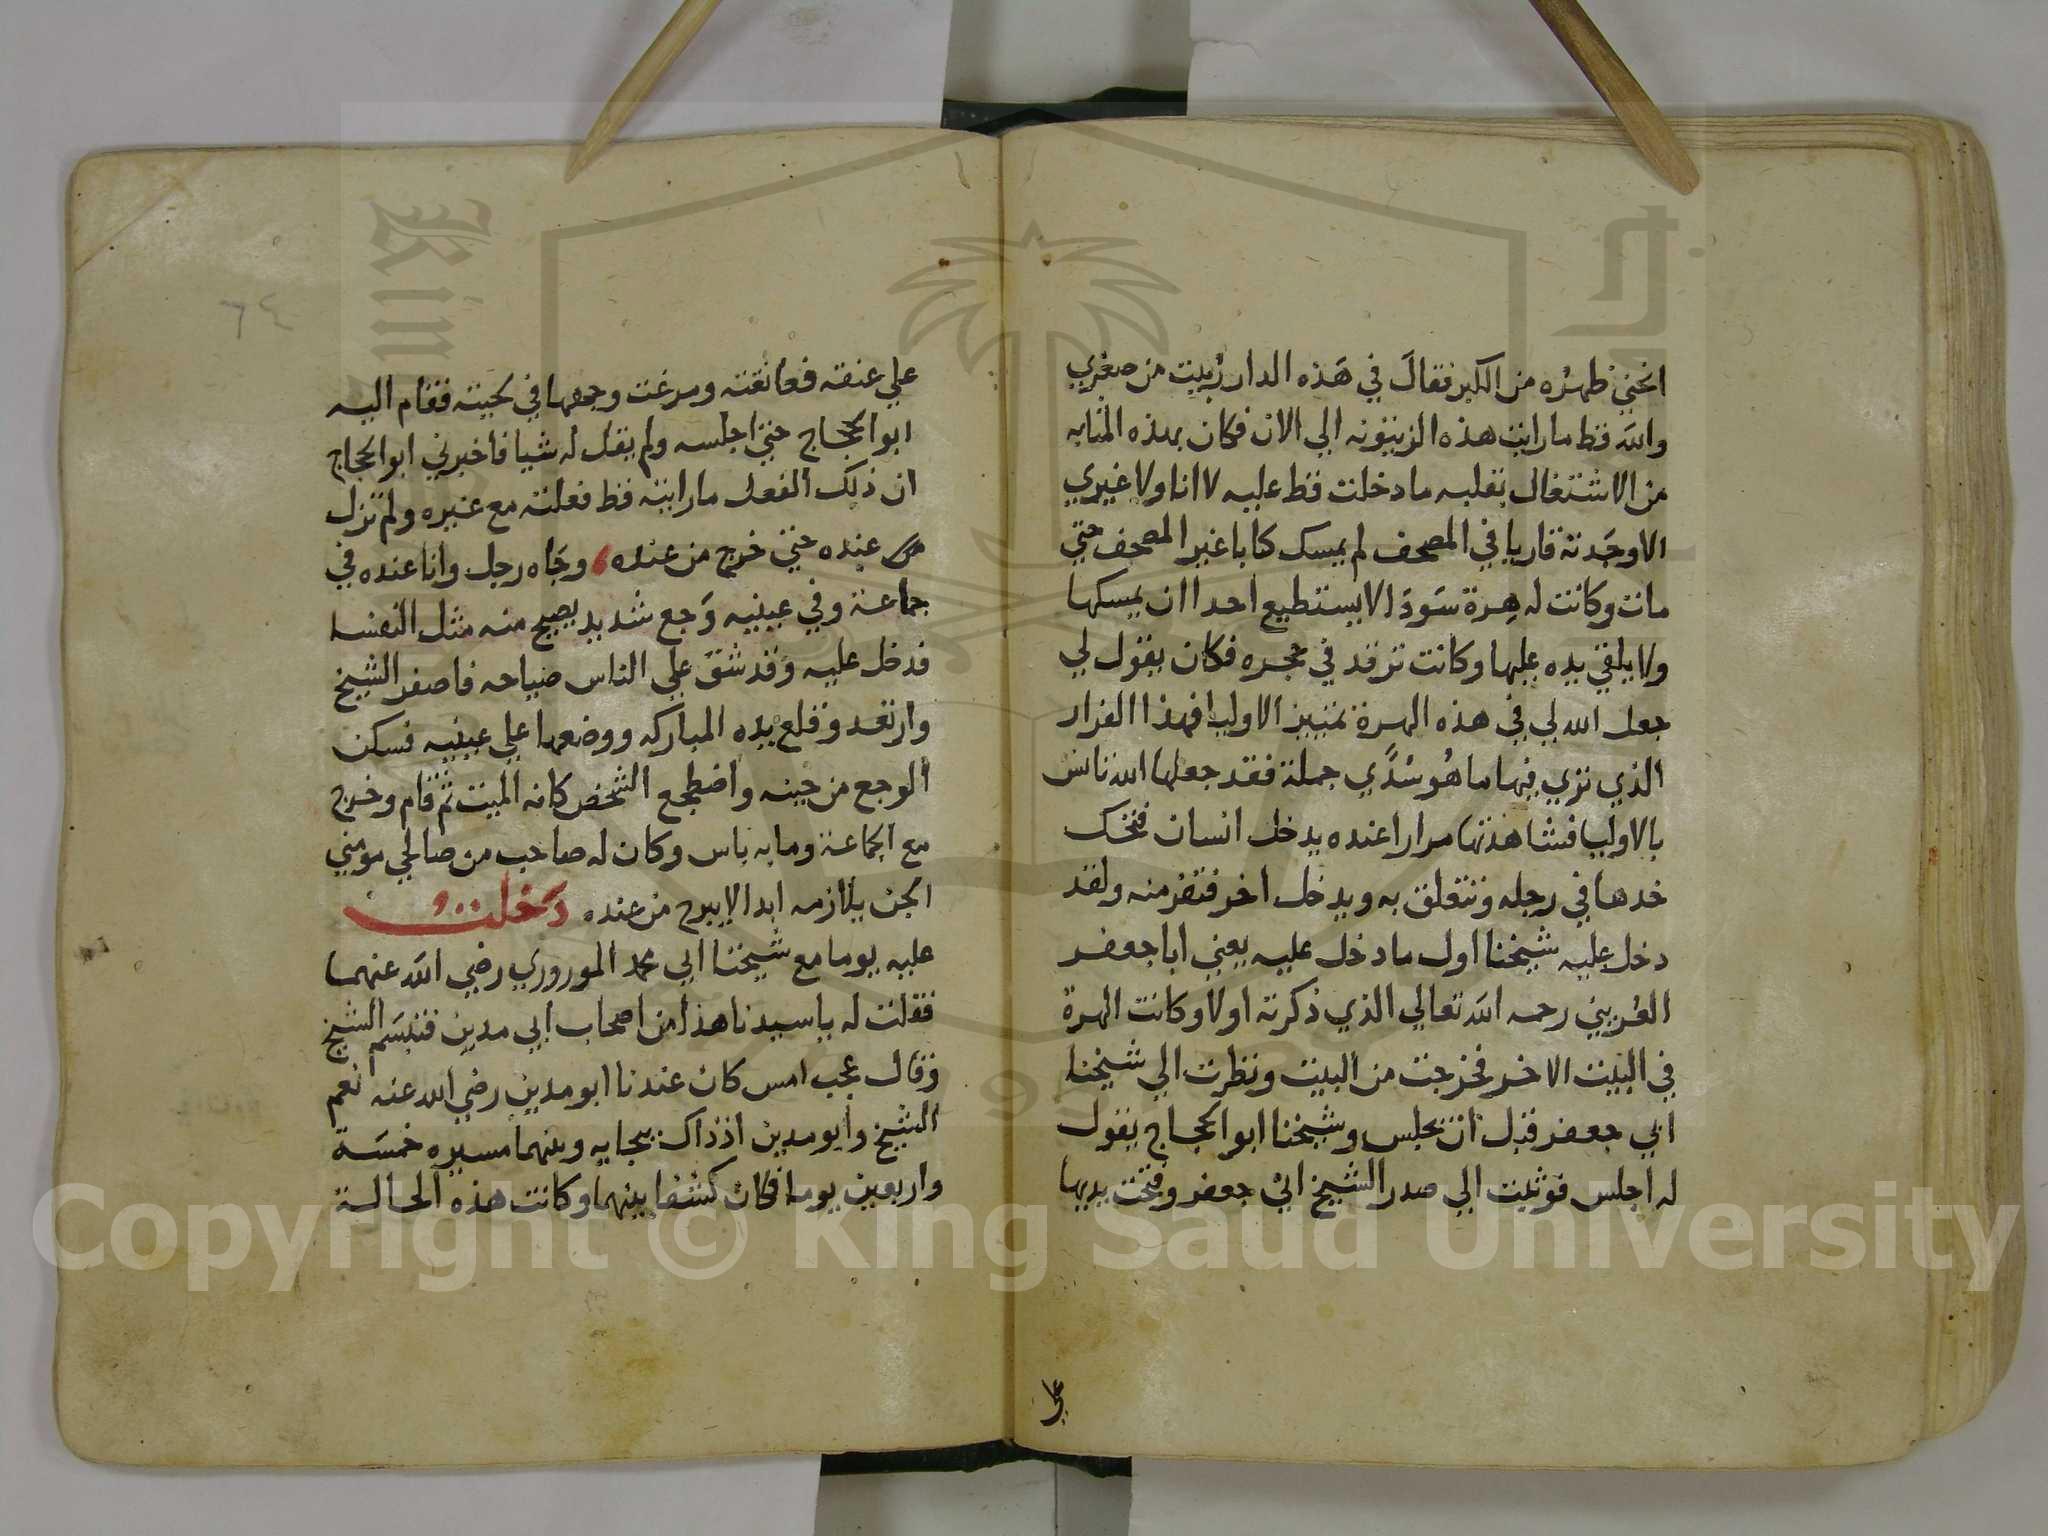 انحنى ظهره من الكبر فقال في هذه الدار رُبيت من صغري
والله قط ما رايت هذه الزيتونه الي الان فكان بهذه المثابه
من الاشتغال بقلبه ما دخلت قط عليه لا انا ولا غيري
الا وجدته قاريا في المصحف لم يمسك كتابا غير المصحف حتي
مات وكانت له هرة سَودَا لا يستطيع احدا ان يمسكها
ولا يلقي يده عليها وكانت ترقد في حجره فكان يقول لي
جعل الله لي في هذه الهرة تمييز الاوليا فهذا الفرار
الذي تري فيها ما هُو سُدًي جملة فقد جعلها الله تانس
بالاوليا فشاهدتها مرارا عنده يدخل انسان فتحك
خدها في رجله وتتعلق به ويدخل اخر فتفر منه ولقد
دخل عليه شيخنا اول ما دخل عليه يعني ابا جعفر
العُريبي رحمه الله تعالي الذي ذكرته اولا وكانت الهرة
في البيت الاخر فخرجت من البيت ونظرت الي شيخنا
ابي جعفر قبل ان يجلس وشيخنا ابو الحجاج يقول
له اجلس فوثبت الي صدر الشيخ ابي جعفر وفتحت يديها
علي
٦٤
علي عنقه فعانقته ومرغت وجهها في لحيته فقام اليه
ابو الحجاج حتي اجلسه ولم يقل له شيا فاخبرني ابو الحجاج
ان ذلك الفعل ما رايته قط فعلته مع غيره ولم تزل
عنده حتي خرج من عنده وجَاه رجل وانا عنده في
جماعة وفي عينيه وَجع شديد يصيح منه مثل النفسا
فدخل عليه وقد شق علي الناس صياحه فاصفر الشيخ
وارتعد وقلع يده المباركه ووضعها علي عينيه فسكن
الوجع من حينه واضطجع الشخص كانه الميت ثم قام وخرج
مع الجماعة وما به باس وكان له صاحب من صالحي مومني
الجن يلازمه ابدا لا يبرح من عنده دخلت
عليه يوما مع شيخنا ابي محمد الموروري رضي الله عنهما
فقلت له يا سيدنا هذا من اصحاب ابي مدين فتبسم الشيخ
وقال عجب امس كان عندنا ابو مدين رضي الله عنه نعم
الشيخ وابو مدين اذ ذاك ببجايه وبينهما مسيره خمسَة
واربعين يوما فكان كشفا بينهما وكانت هذه الحالة
Copyright © King Saud University